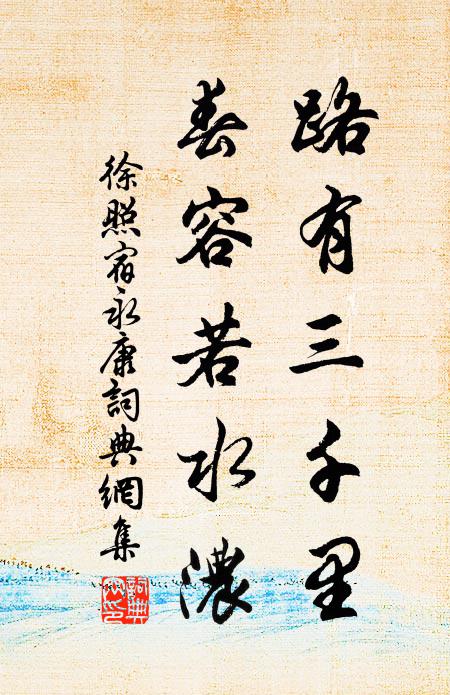 路有三千里
春容若水濃
徐照宿永康詞典網集